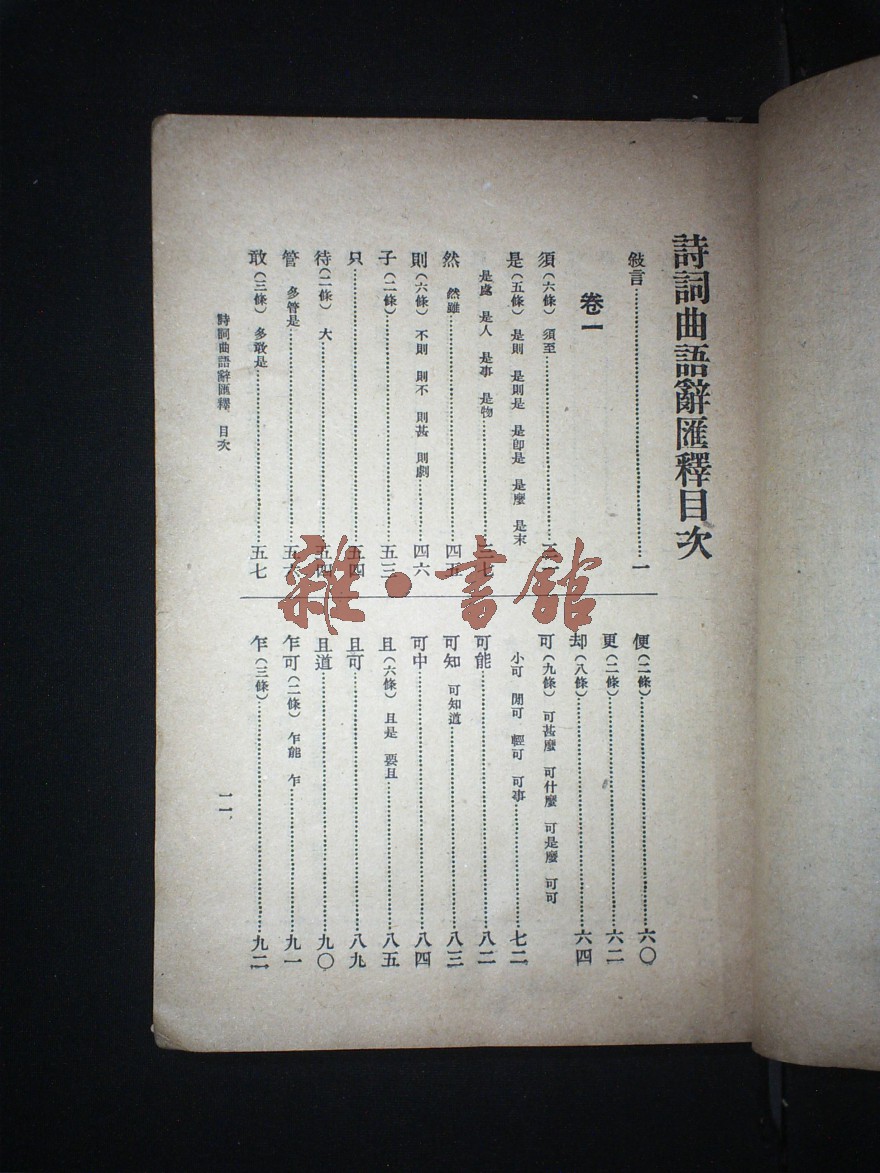 詩詞曲語辭匯釋目次
敍言………一
卷一
須(六條) 須至………
是(五條) 是則 是則是 是卽是 是麼 是末
是處 是人 是事 是物………三七
然 然雖………四五
則(六條) 不則 則不 則甚 則劇………四六
子(二條)………五三
只………五四
待(二條) 大………五四
管 多管是………五六
敢(三條) 多敢是………五七
便(二條)………六〇
更(二條)………六二
却(八條)………六四
可(九條) 可甚麼 可什麼 可是麼 可可
小可 閒可 輕可 可事………七二
可能………八二
可知 可知道………八三
可中………八四
且(六條) 且是 要且………八五
且可………八九
且道………九〇
乍可(二條) 乍能 乍………九一
乍(三條)………九二
詩詞曲語辭匯釋 目次
一一
雜·書館